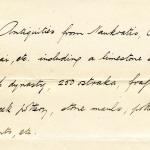 Antiquities from Naukratis,
ai, etc. including a limestone
dynasty, 250 ostraka, frag
ek pottery, stone mauls, pot
ts, etc.